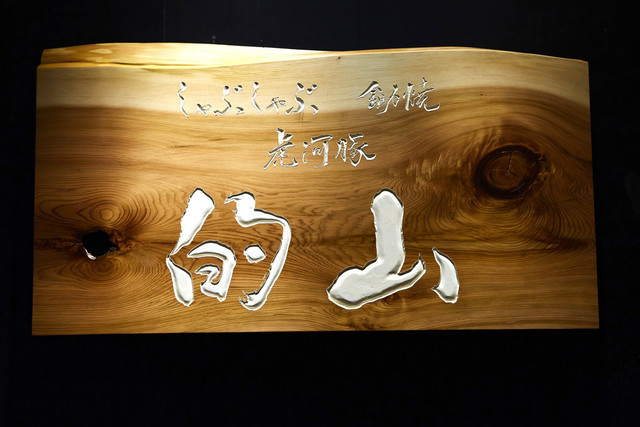 しゃぶしゃぶ 鋤焼
虎河豚
的山